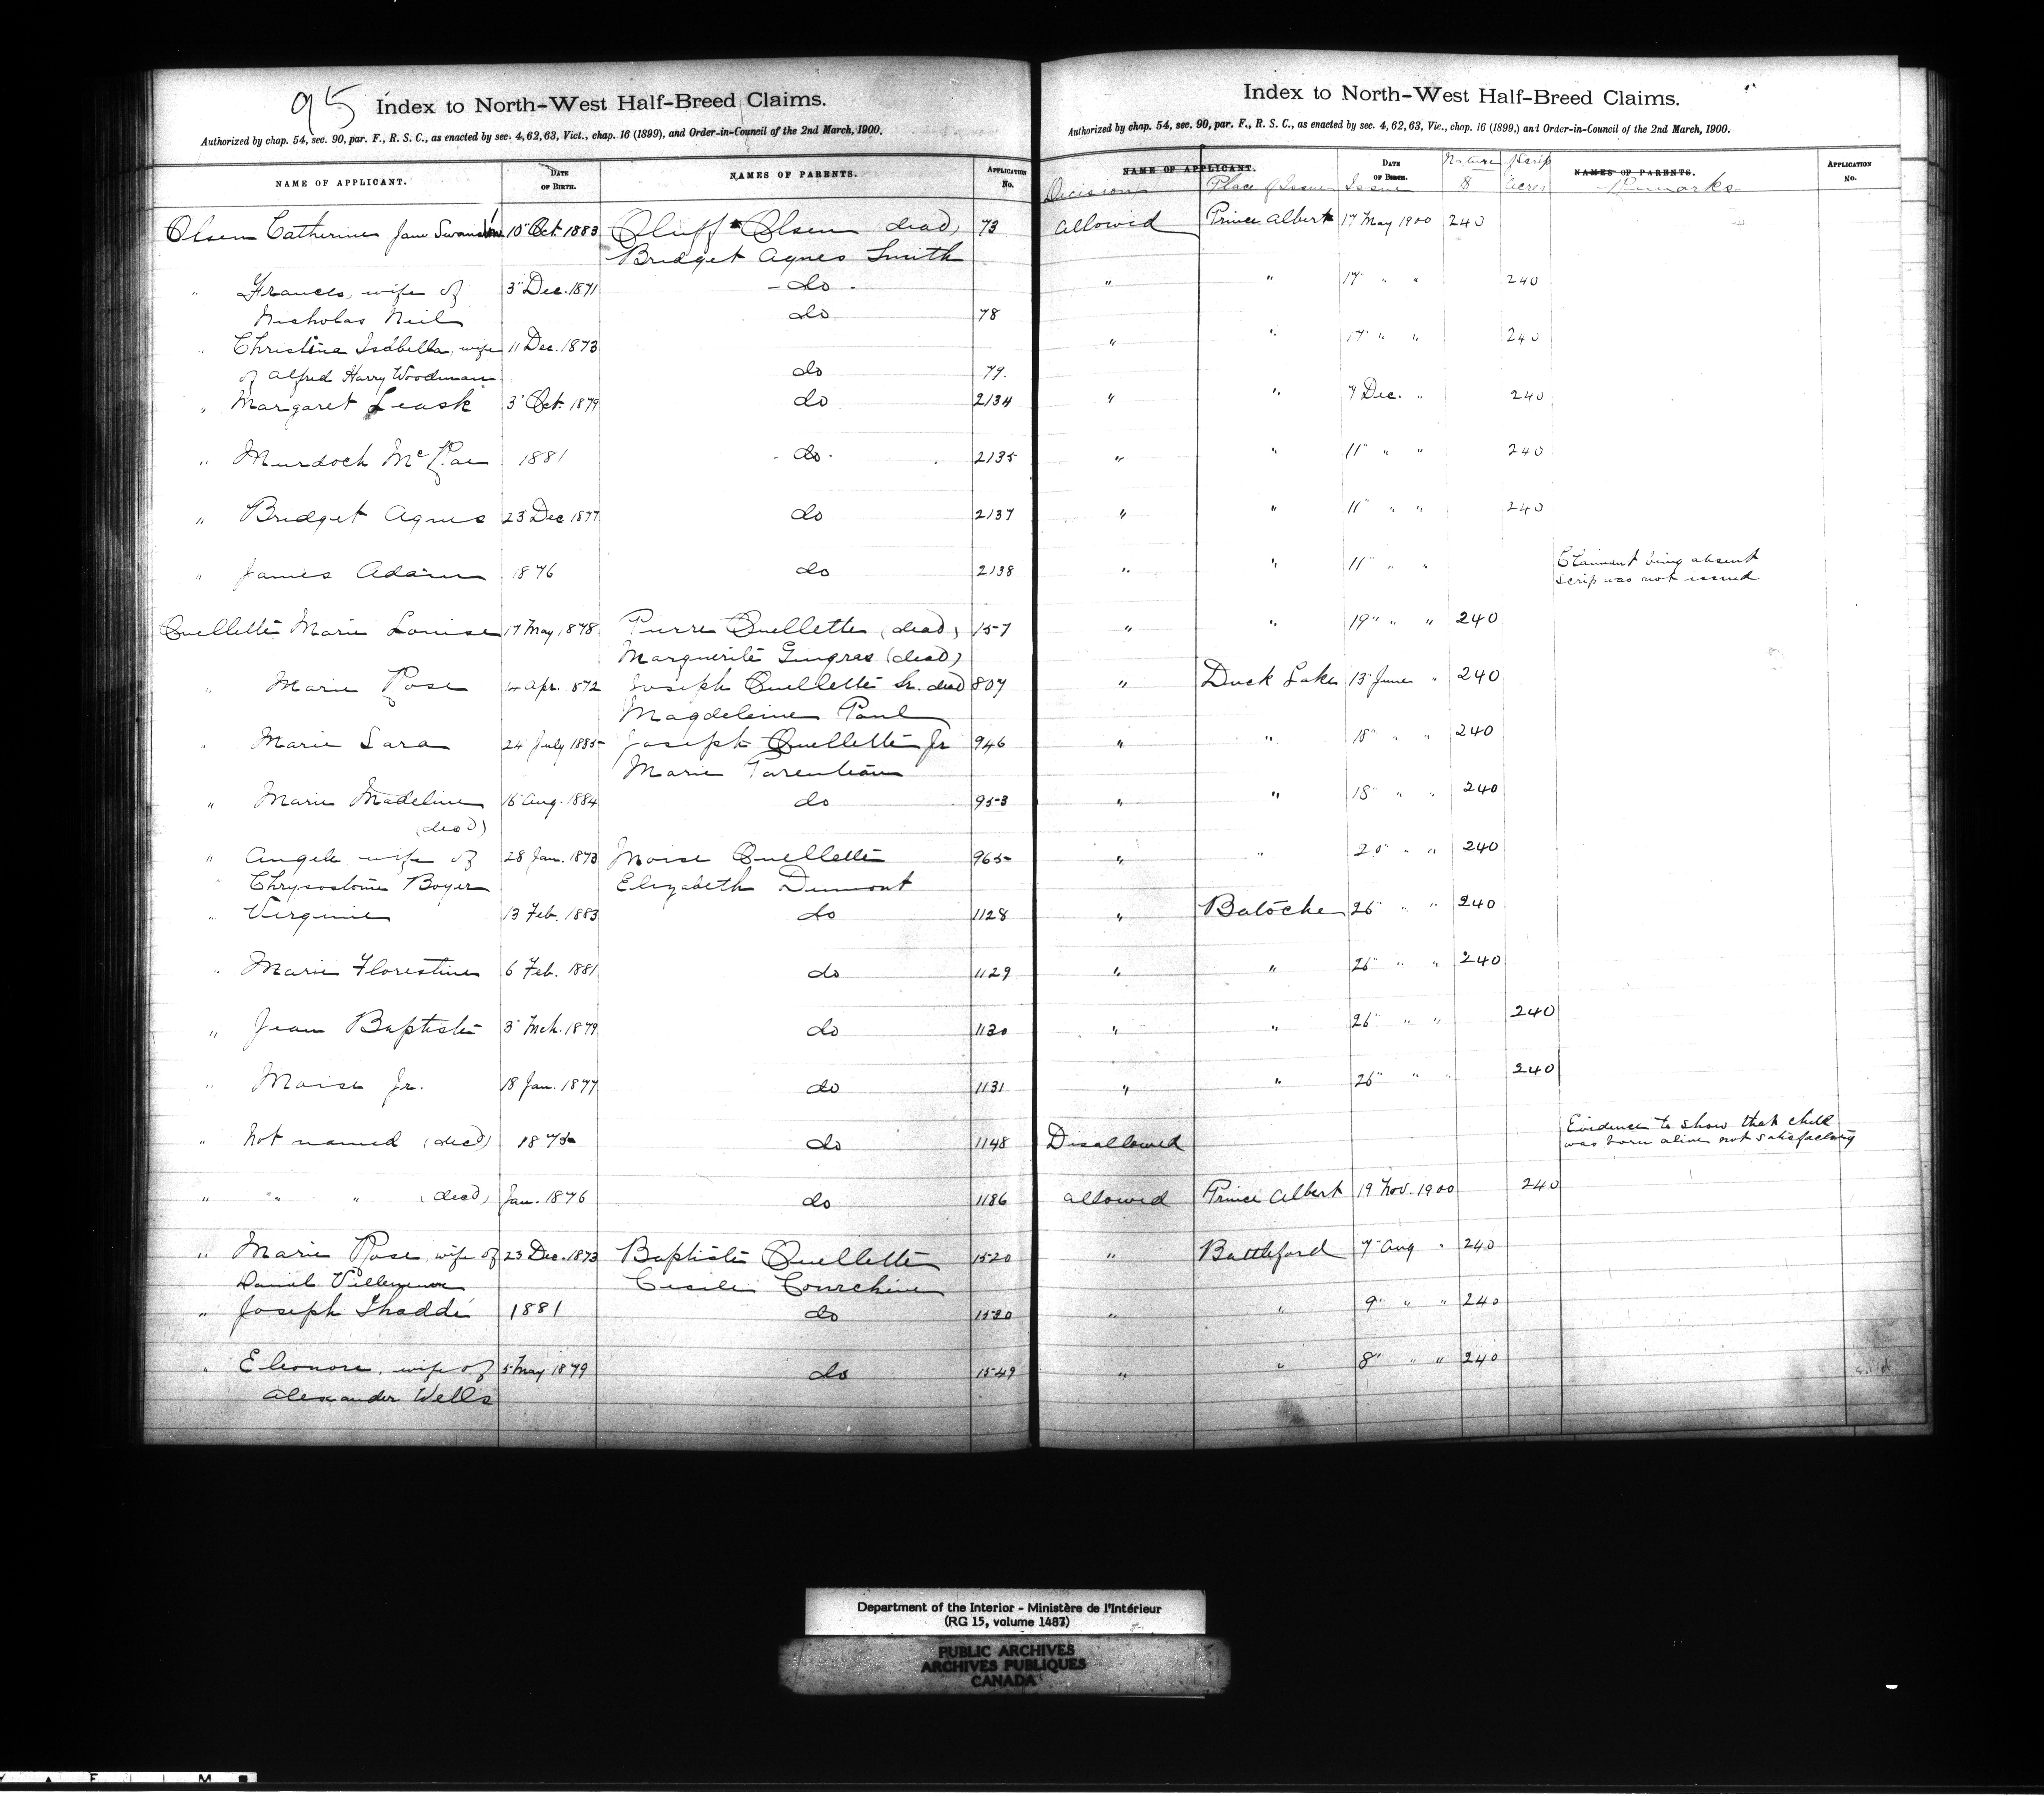 95
Index to North-West Half-Breed Claims.
Authorized by chap. 54, sec. 90, par. F., R. S. C., as enacted by sec. 4, 62, 63, Vict., chap. 16 (1899), and Order-in-Council of the 2nd March, 1900.
NAME OF APPLICANT. DATE OF BIRTH. NAMES OF PARENTS. APPLICATION No.
Olsen Catherine Jane Swanston 10" Oct. 1883 Oluff Olsen (dead) 73
Bridget Agnes Smith
" Frances, wife of 3" Dec. 1871 - do -
Nicholas Neil do 78
" Christina Isabella, wife 11 Dec. 1873
of Alfred Harry Woodman do 79.
" Margaret Leask 3" Oct. 1879 do 2134
" Murdoch McRae 1881 - do - 2135
" Bridget Agnes 23 Dec 1877 do 2137
" James Adam 1876 do 2138
Ouellette Marie Louise 17 May 1878 Pierre Ouellette (dead) 157
Marguerite Gingras (dead)
" Marie Rose Apr. 1872 Joseph Ouellette Sr. dead 807
Magdeleine Paul
" Marie Sara 24 July 1885 Joseph Ouellette Jr 946
Marie Parenteau
" Marie Madeline 16 Aug. 1884 do 953
(dead)
" Angele wife of 28 Jan. 1873 Moise Ouellette 965
Chrysostome Boyer Elizabeth Dumont
" Virginie 13 Feb. 1883 do 1128
" Marie Florestine 6 Feb. 1881 do 1129
" Jean Baptiste 3" Mch. 1879 do 1130
" Moise Jr. 18 Jan. 1877 do 1131
" Not named (decd) 1875 do 1148
" " " (decd) Jan. 1876 do 1186
" Marie Rose, wife of 23 Dec. 1873 Baptiste Ouellette 1520
Daniel Villeneuve Cecile Courchene
" Joseph Thaddé 1881 do
" Eleonore, wife of 5 May 1879 do 1549
Alexander Wells
Index to North-West Half-Breed Claims.
Authorized by chap. 54, sec. 90, par. F., R. S. C., as enacted by sec. 4, 62, 63, Vic., chap. 16 (1899,) and Order-in-Council of the 2nd March, 1900.
NAME OF APPLICANT. DATE OF BIRTH. Nature Scrip NAMES OF PARENTS. APPLICATION No.
Decision Place of Issue Issue $ Acres Remarks
Allowed Prince Albert 17 May 1900 240
" " 17" " " 240
" " 17" " " 240
" " 7 Dec. " 240
" " 11" " " 240
" " 11" " " 240
" " 11" " " Claimant being absent
scrip was not issued
" " 19" " " 240
" Duck Lake 13" June " 240
" " 18" " " 240
" " 18" " " 240
" " 20" " " 240
" Batoche 26" " " 240
" " 26" " " 240
" " 26" " " 240
" " 26" " " 240
Disallowed Evidence to show that child
was born alive not satisfactory
allowed Prince Albert 19 Nov. 1900 240
" Battleford 7" Aug " 240
" " 9" " " 240
" " 8" " " 240
Department of the Interior - Ministère de l'Intérieur
(RG 15, volume 1487)
PUBLIC ARCHIVES
ARCHIVES PUBLIQUES
CANADA